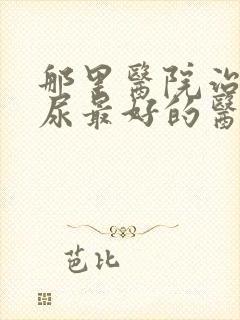 那里醫院治
尿最好的醫
芭比